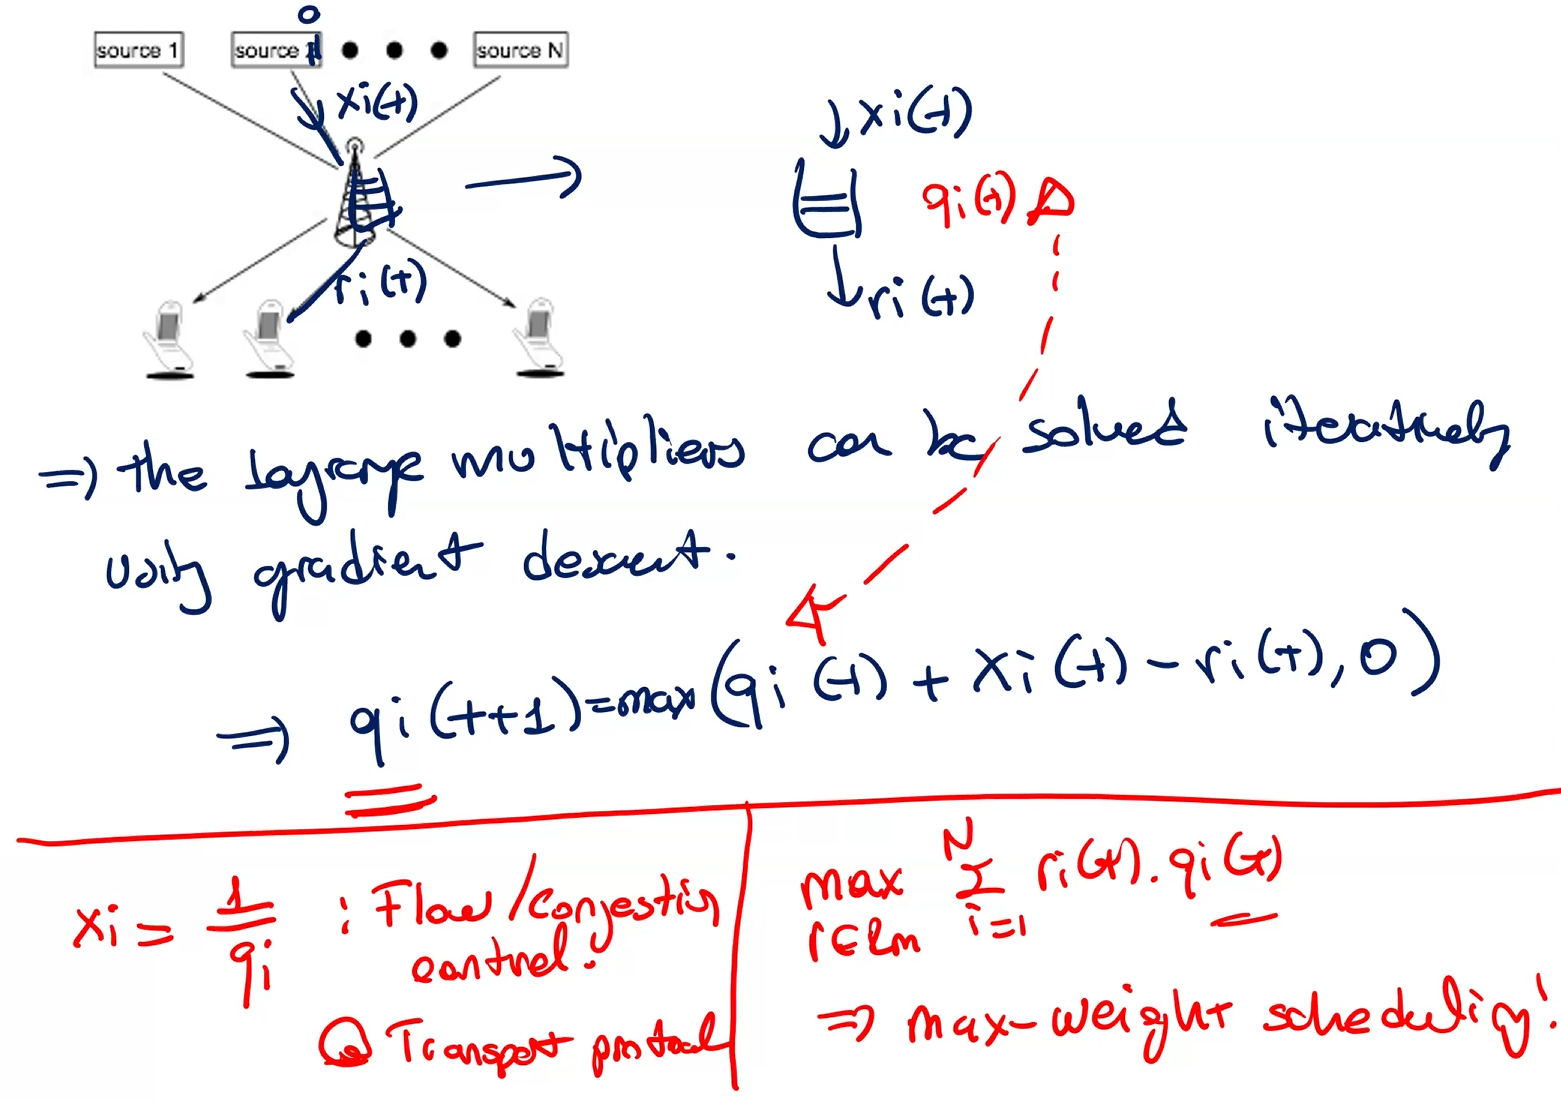 source 1 source i source N
xi(t)
ri(t)
xi(t)
qi(t)
ri(t)
=> the Lagrange multipliers can be solved iteratively
using gradient descent.
=> qi(t+1)=max(qi(t) + xi(t) - ri(t), 0)
xi = 1/qi : Flow/congestion
control.
@ Transport protocol
max N Σ i=1 ri(t).qi(t)
r∈Rm
=> max-weight scheduling!